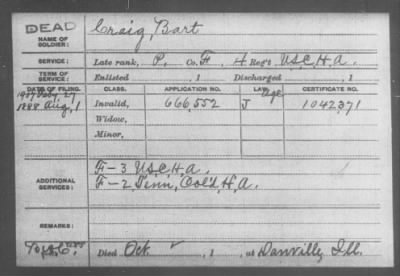 DEAD
NAME OF SOLDIER: Craig, Bart
SERVICE: Late rank, P. Co. F, 4 Reg't U.S.C.H.A.
TERM OF SERVICE: Enlisted , 1 Discharged , 1
DATE OF FILING. CLASS. APPLICATION NO. LAW. CERTIFICATE NO.
1907 27 Age
1888 Aug, 1 Invalid, 666,552 J 1042371
Widow,
Minor,
F-3 U.S.C.H.A.
ADDITIONAL SERVICES: F-2 Tenn, Col'd, H.A.
REMARKS:
Died Oct , 1 , at Danville, Ill.